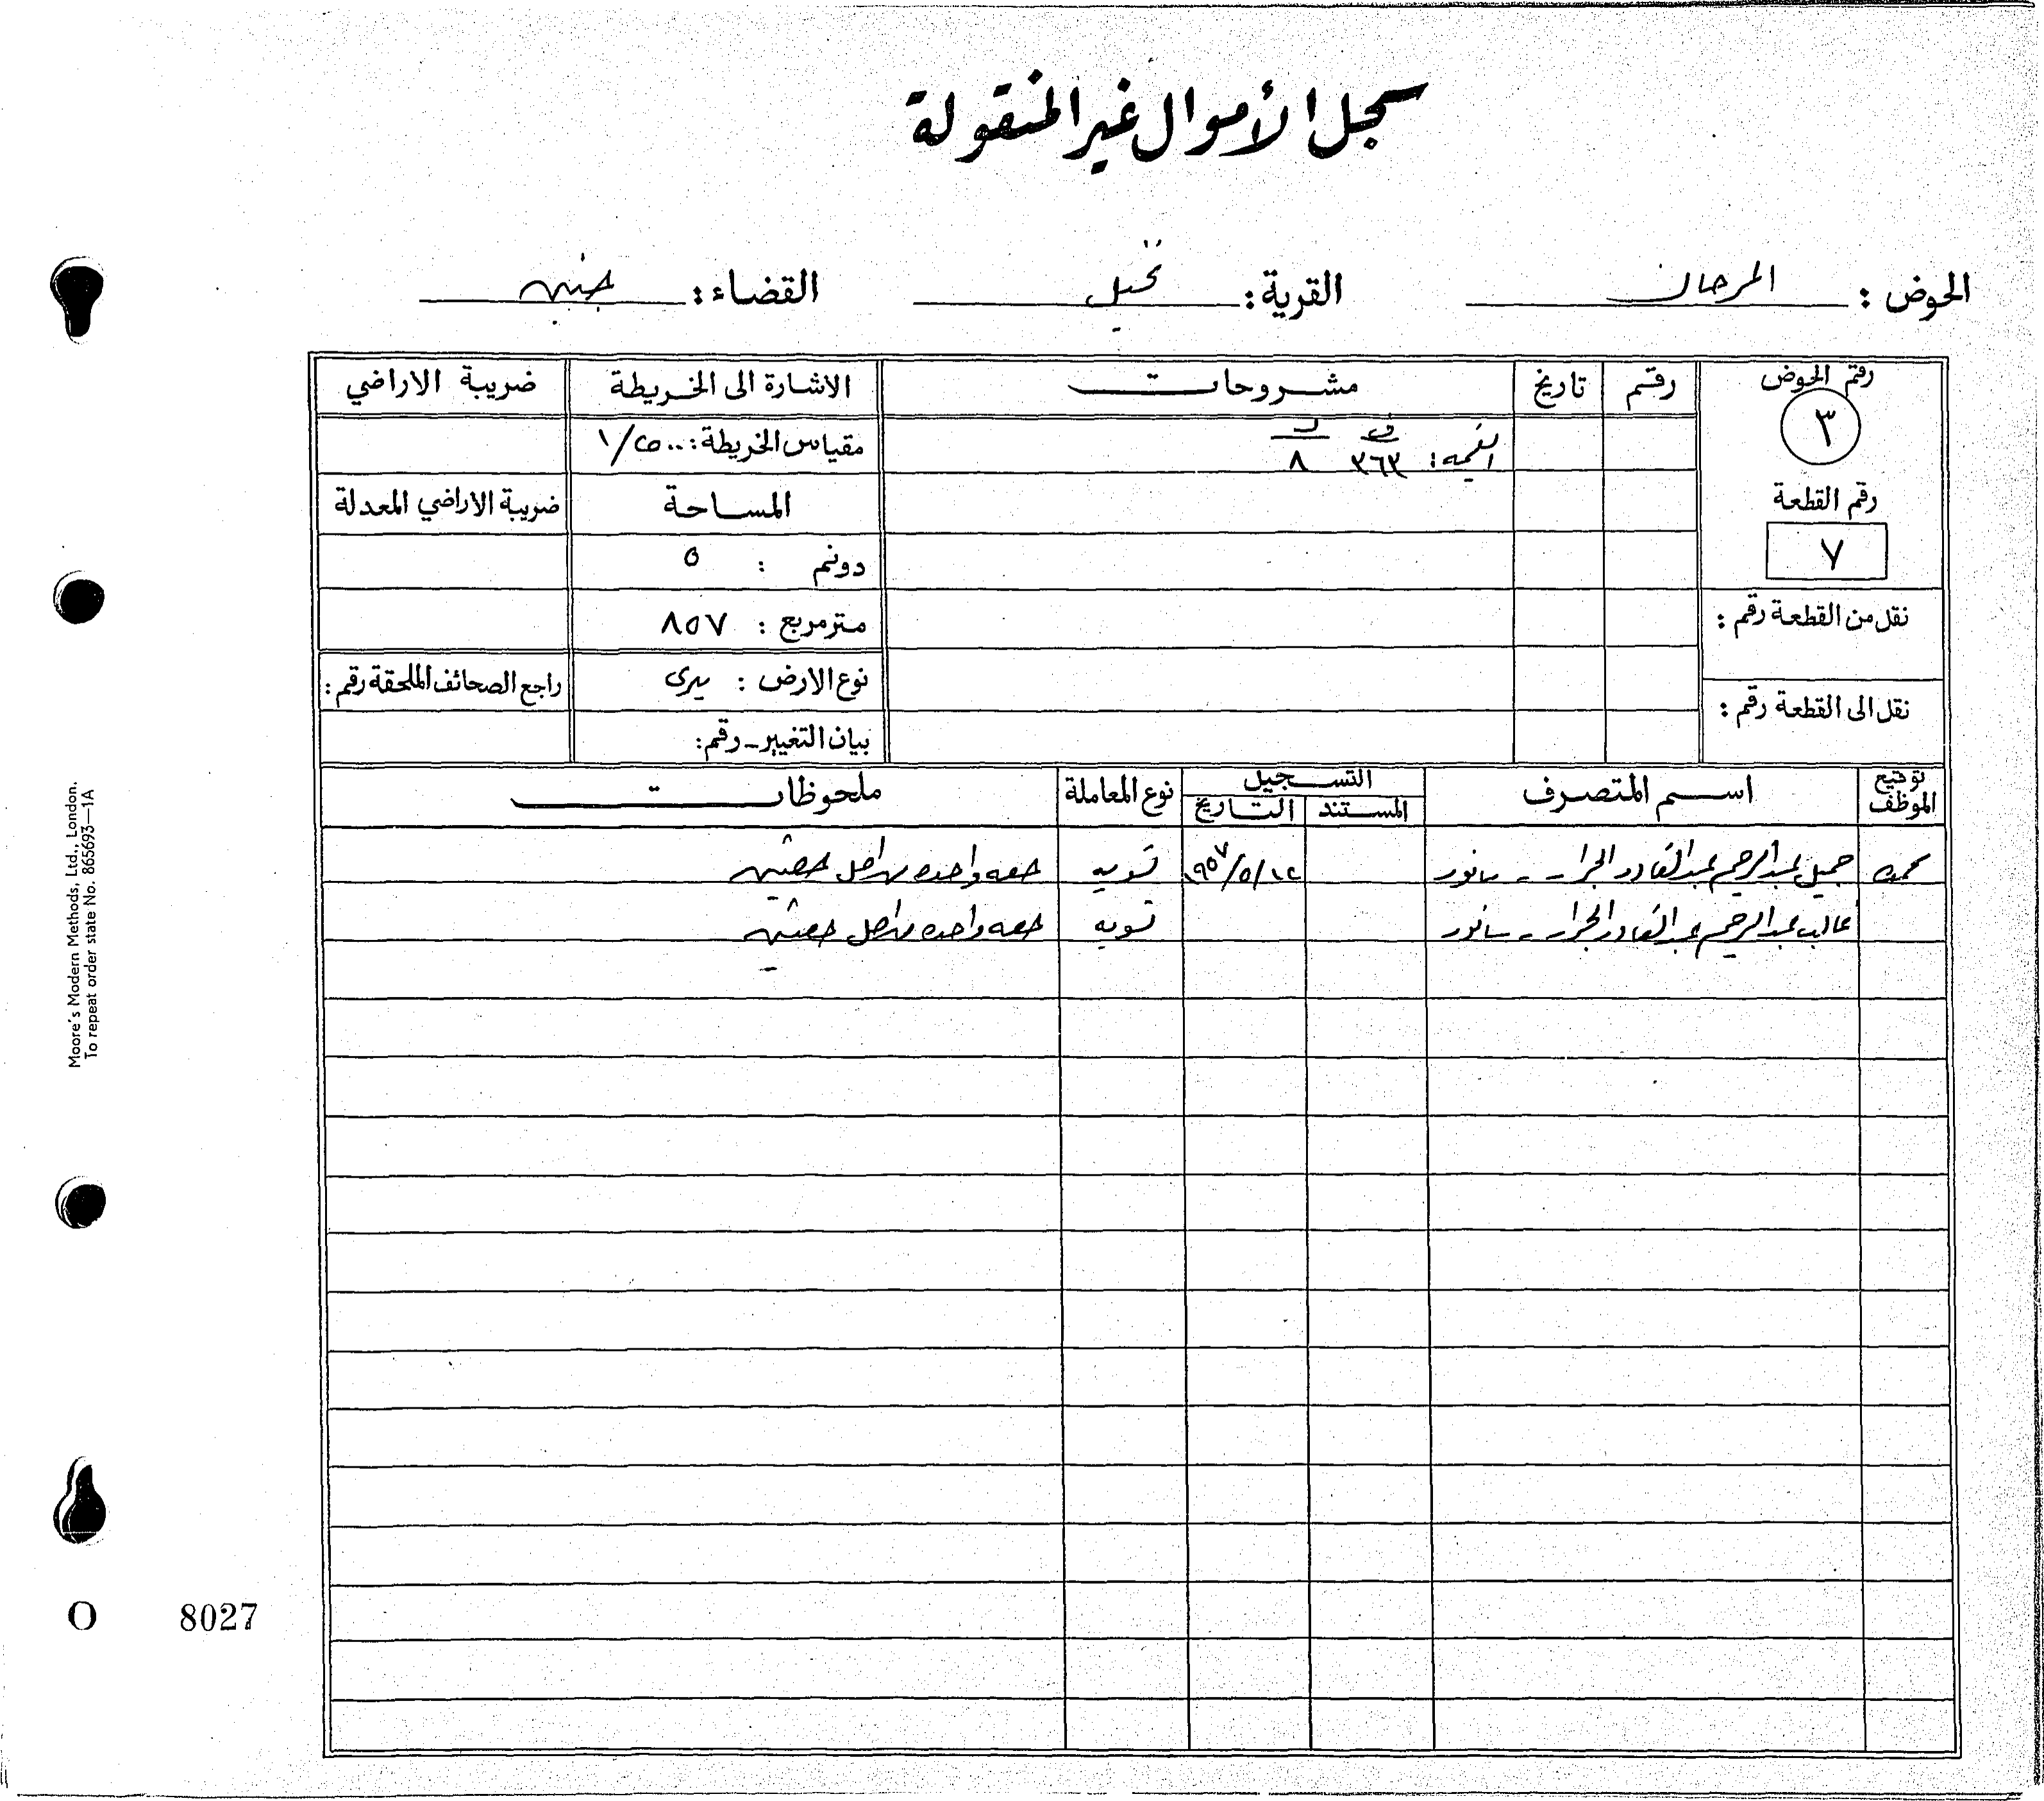 سجل الأموال غير المنقولة
الحوض : المرحان القرية : القضاء : جنين
رقم الحوض رقم تاريخ مشروحات الاشارة الى الخريطة ضريبة الاراضي
٣ القيمه : ٣٦٣ ٨ مقياس الخريطة : ١/٢٥٠٠
رقم القطعة المساحة ضريبة الاراضي المعدلة
٧ دونم : ٥
نقل من القطعة رقم : متر مربع : ٨٥٧
نوع الارض : ميرى راجع الصحائف الملحقة رقم :
نقل الى القطعة رقم :
بيان التغيير - رقم :
توقيع الموظف اسم المتصرف التسجيل نوع المعاملة ملحوظات
المستند التاريخ
جميل عبد الرحيم عبد القادر الجرار - سانور ١٩٥٧/٥/١٢ تسويه حصه واحده من اصل حصتين
غالب عبد الرحيم عبد القادر الجرار - سانور تسويه حصه واحده من اصل حصتين
Moore's Modern Methods, Ltd., London.
To repeat order state No. 865693—1A
O 8027